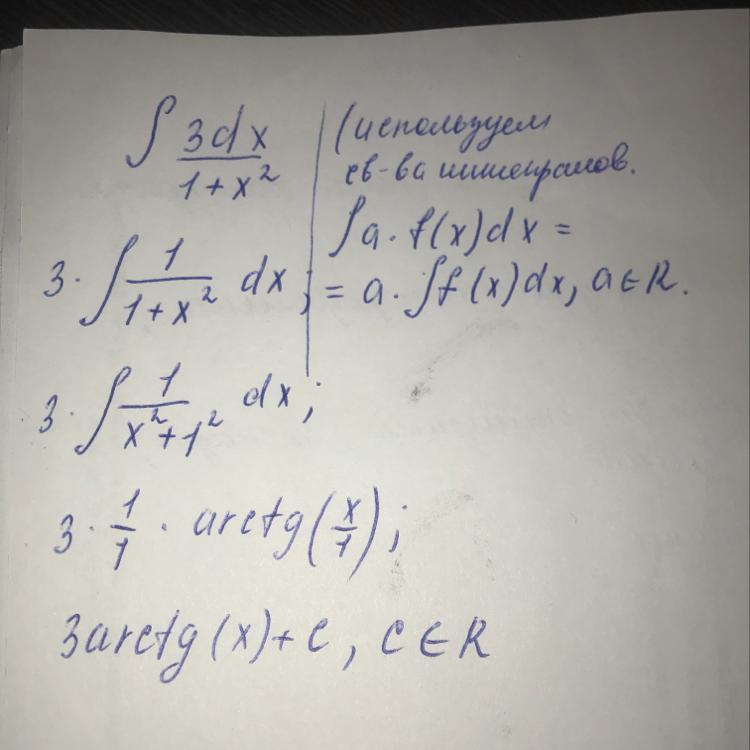 ∫ 3dx / 1+x²
(используем
св-ва интегралов.
∫a·f(x)dx =
= a·∫f(x)dx, a∈R.
3·∫ 1 / 1+x² dx;
3·∫ 1 / x²+1² dx;
3 · 1/1 · arctg(x/1);
3arctg(x)+c, c∈R